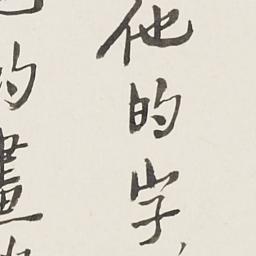 他的字，
的畫